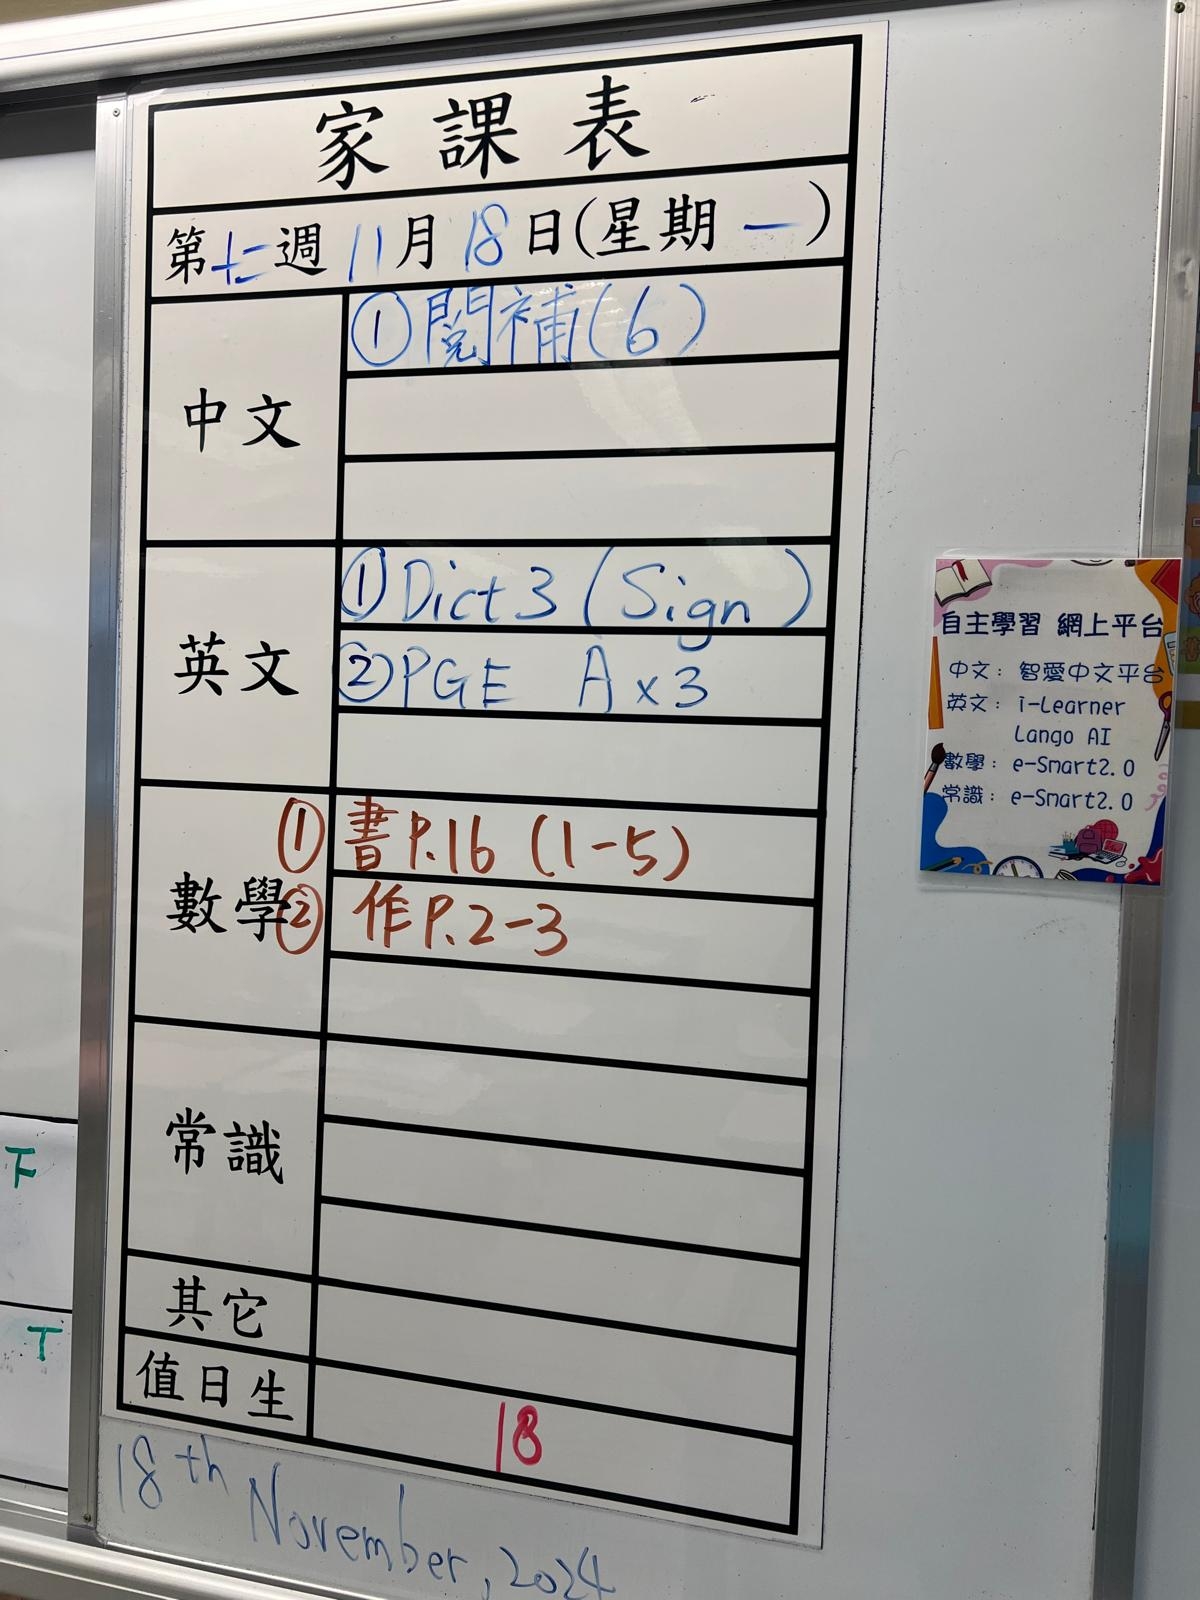 家課表
第十二週 11月18日(星期一)
中文
①閱補(6)
英文
①Dict 3 (Sign)
②PGE A x 3
數學
①書P.16 (1-5)
②作P.2-3
常識
其它
值日生
18
18th November, 2024
自主學習 網上平台
中文：智愛中文平台
英文：i-Learner
Lango AI
數學：e-Smart2.0
常識：e-Smart2.0
下
T